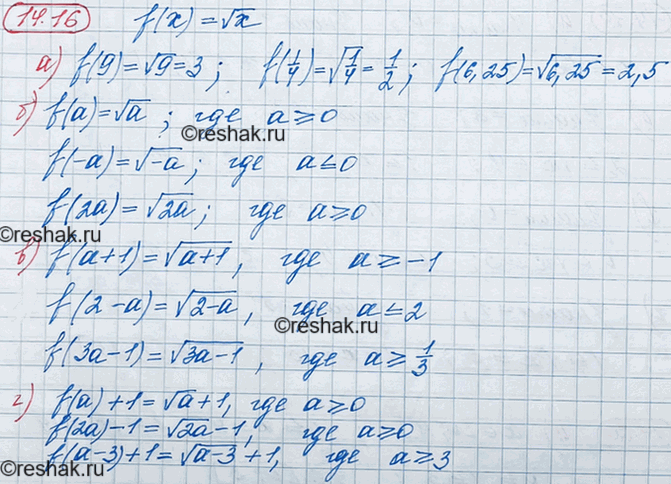 14.16 f(x) = √x
а) f(9) = √9 = 3; f(1/4) = √1/4 = 1/2; f(6,25) = √6,25 = 2,5
©reshak.ru
б) f(a) = √a; где a ≥ 0
f(-a) = √-a; где a ≤ 0
©reshak.ru
f(2a) = √2a; где a ≥ 0
©reshak.ru
в) f(a+1) = √a+1, где a ≥ -1
f(2-a) = √2-a, где a ≤ 2
©reshak.ru
f(3a-1) = √3a-1, где a ≥ 1/3
г) f(a)+1 = √a+1, где a ≥ 0
f(2a)-1 = √2a-1, где a ≥ 0
f(a-3)+1 = √a-3+1, где a ≥ 3
©reshak.ru
©reshak.ru